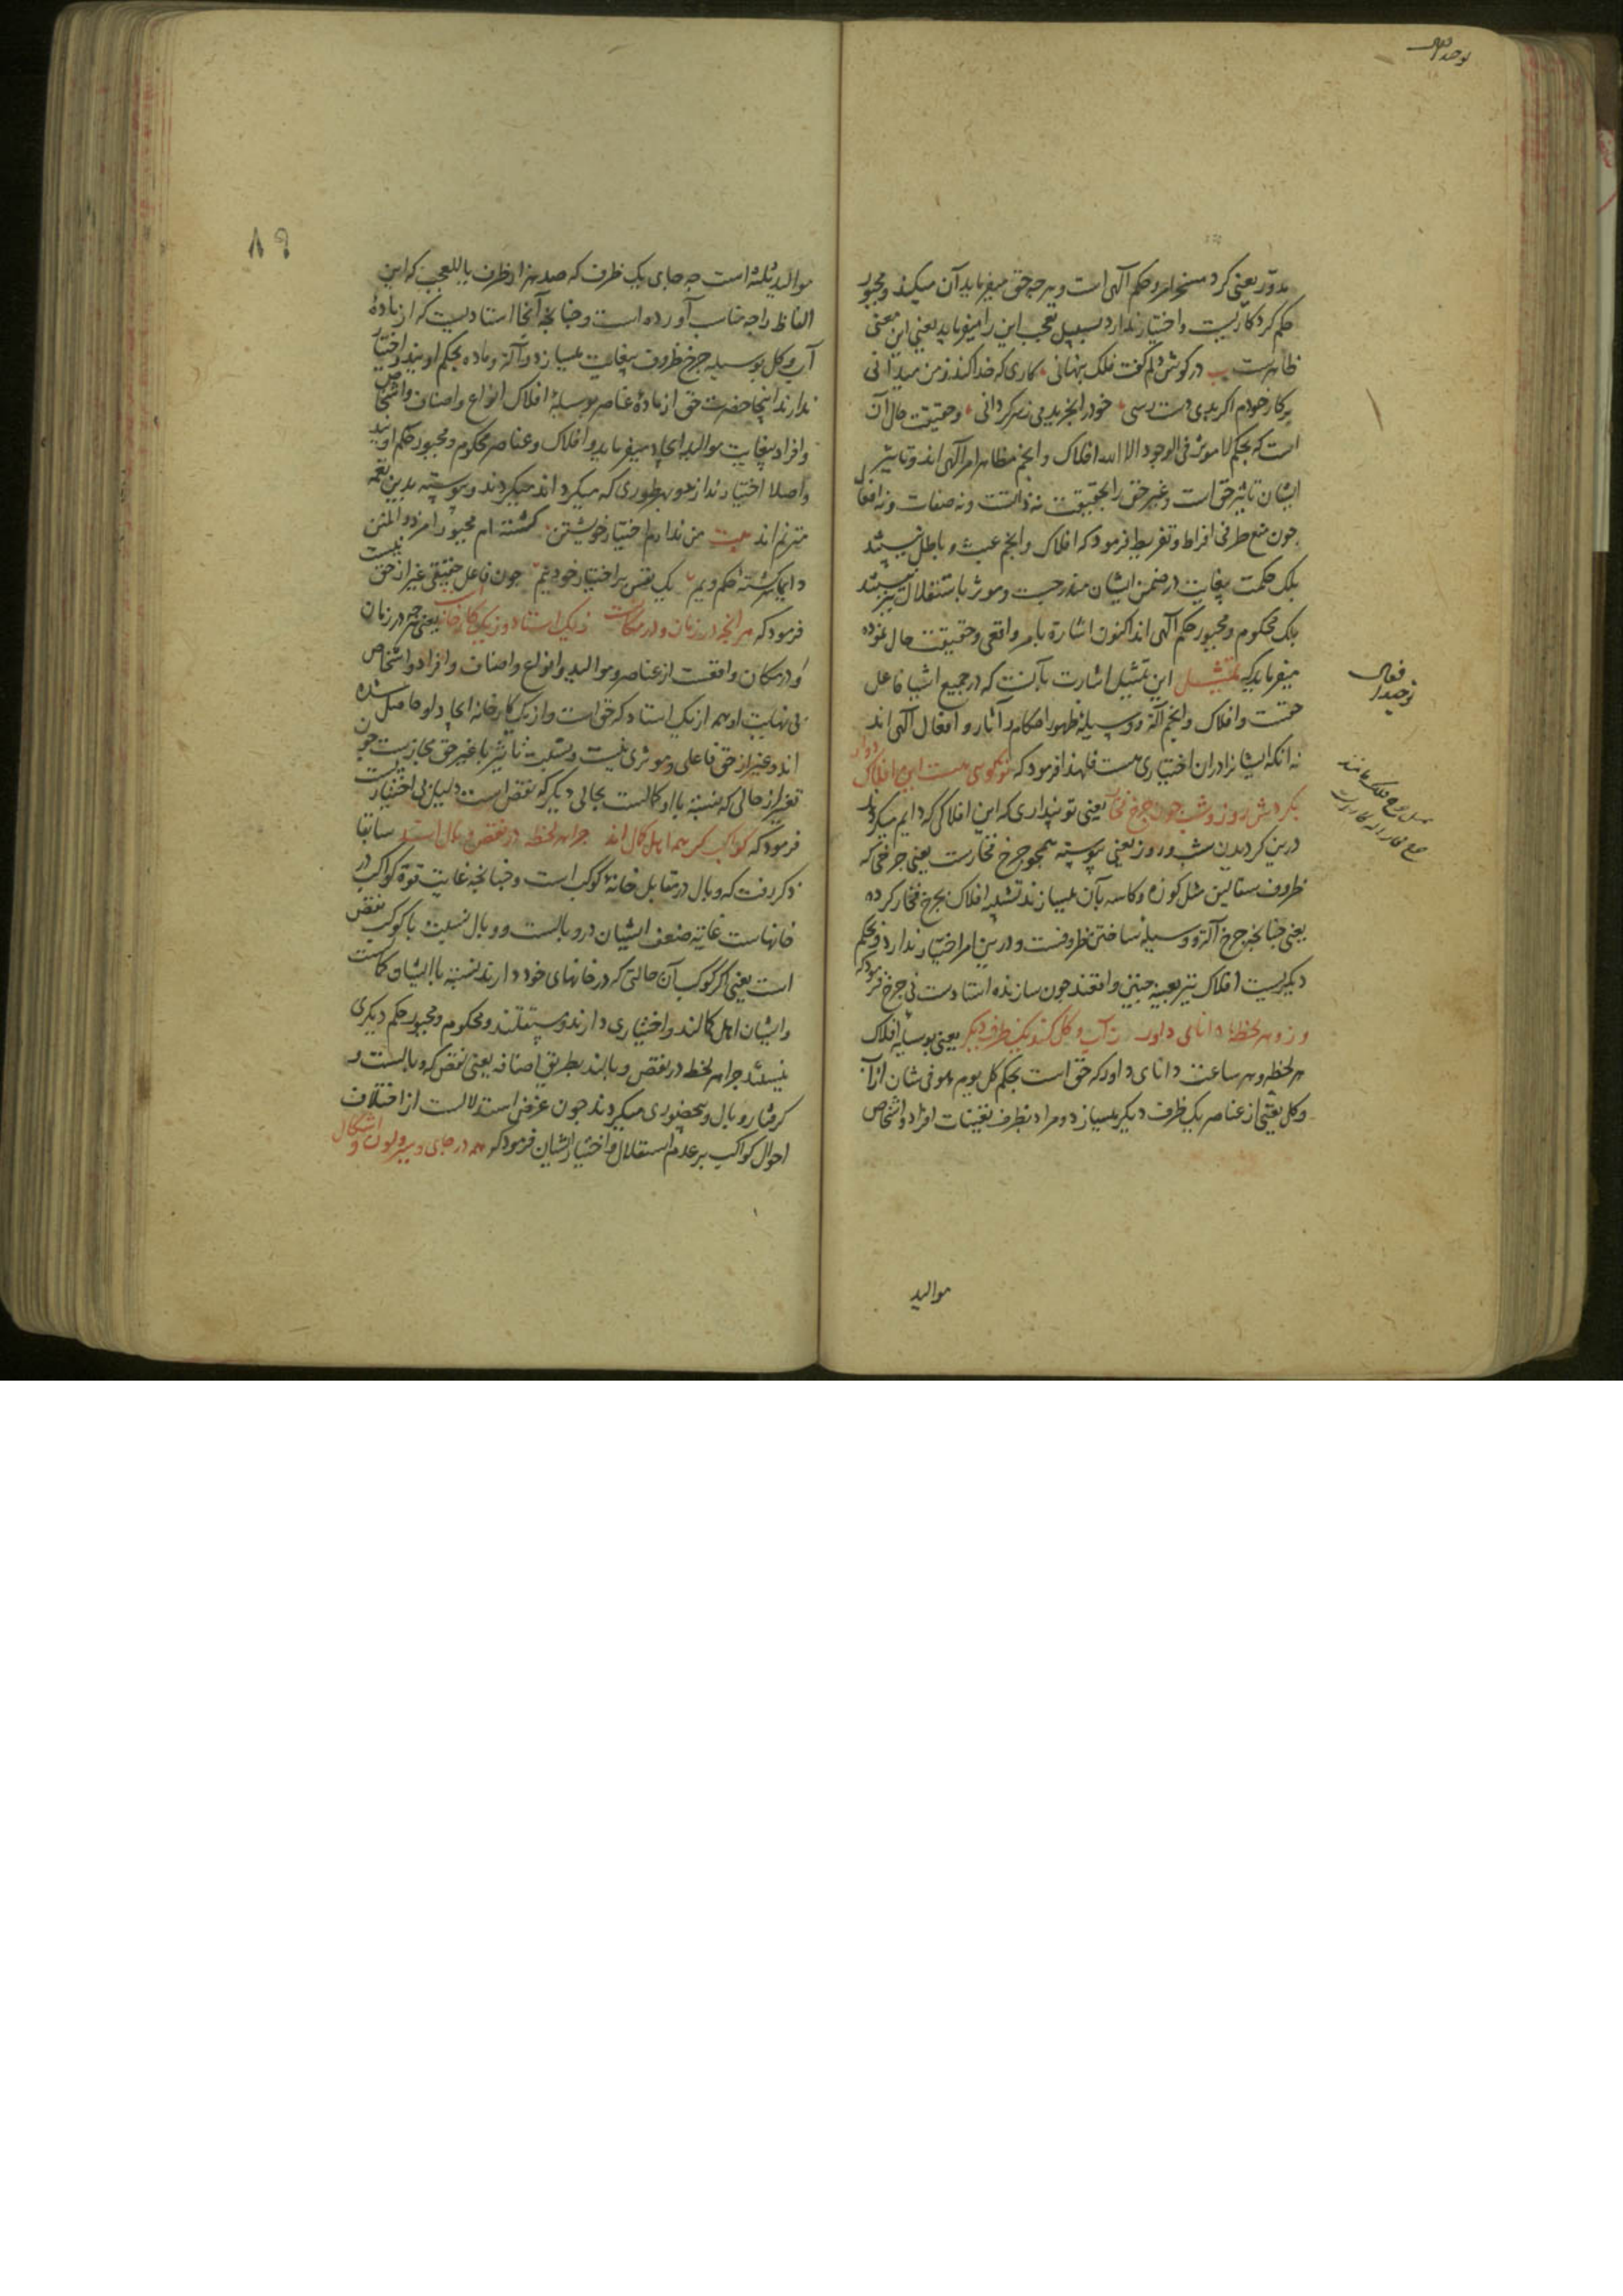 مدوّر یعنی کرد مسخر امر و حکم آلهی است و هر چه حق میفرماید آن میکند و مجبور
حکم کردکاریست و اختیار ندارد بسبیل تعجب این را میفرماید یعنی این معنی
ظاهرست بیت در کوش دلم کفت فلک پنهانی کاری که خدا کند ز من میدانی
در کار خودم اکر بدی دست رسی خود را بخریدمی ز سرکردانی و حقیقت حال آن
است که بحکم لا موثر فی الوجود الا الله افلاک و انجم مظاهر امر آلهی اند و تاثیر
ایشان تاثیر حق است و غیر حق را بحقیقت نه ذاتست و نه صفات و نه افعال
چون منع طرفی افراط و تفریط فرمود که افلاک و انجم عبث و باطل نیستند
بلک حکمت بیغایت در ضمن ایشان مندرجست و موثر باستقلال نیز نیستند
بلک محکوم و مجبور حکم آلهی اند اکنون اشارة بامر واقعی و حقیقت حال نموده
میفرماید که تمثیل این تمثیل اشارت بآنست که در جمیع اشیا فاعل
حقست و افلاک و انجم آلة و وسیلهٔ ظهور احکام و آثار و افعال آلهی اند
نه انکه ایشانرا در ان اختیاری هست فلهذا فرمود که تو کویی هست این افلاک دوار
بکردش روز و شب چون چرخ فخار یعنی تو پنداری که این افلاکی که دایم میکردند
درین کردیدن شب و روز یعنی پیوسته همچو چرخ فخارست یعنی چرخی که
ظروف سفالین مثل کوزه و کاسه بآن میسازند تشبیه افلاک بچرخ فخار کرده
یعنی چنانچه چرخ آلة و وسیلهٔ ساختن ظروفست و درین امر اختیار ندارد و بحکم
دیکریست افلاک نیز بعینه چنین واقعند چون سازنده استادست نی چرخ فرمود که
وزو هر لحظهٔ دانای داور ز آب و کل کند یک ظرف دیکر یعنی بوسیله افلاک
هر لحظه و هر ساعت دانای داور که حق است بحکم کل یوم هو فی شان از آب
و کل یعنی از عناصر یک ظرف دیکر میسازد و مراد بظرف تعینات افراد و اشخاص
موالید
توحید افعال
۸۹
موالید ثلثه است چه جای یک ظرف که صد هزار ظرف یا للعجب که این
الفاظ را چه مناسب آورده است و چنانچه آنجا استادیست که از مادهٔ
آب و کل بوسیله چرخ ظروف بیغایت میسازد و آلة و ماده بحکم اویند و اختیار
ندارند اینجا حضرت حق از مادهٔ عناصر بوسیلهٔ افلاک انواع و اصناف و اشخاص
و افراد بیغایت موالید ایجاد میفرماید و افلاک و عناصر محکوم و مجبور حکم اویند
و اصلا اختیار ندارند و بهر طوری که میکرداند میکردند و پیوسته بدین نغمه
مترنم اند بیت من ندارم اختیار خویشتن کشته ام مجبور امر ذو المنن
دایما سرکشتهٔ حکم ویم یک نفس بر اختیار خود نیم چون فاعل حقیقی غیر از حق نیست
فرمود که هر آنچه در زمان و در مکانست ز یک استاد و ز یک کارخانست یعنی هر چه در زمان
و در مکان واقعست از عناصر و موالید و انواع و اصناف و افراد و اشخاص
بی نهایت او همه از یک استاد که حق است و از یک کارخانه ایجاد او حاصل شده
اند و غیر از حق فاعلی و موثری نیست و نسبت تاثیر با غیر حق مجازیست چون
تغیر از حالی که نسبة با او کمالست بحالی دیکر که نقص است دلیل بی اختیاریست
فرمود که کواکب کر همه اهل کمال اند چرا هر لحظه در نقص و بال اند سابقا
ذکر رفت که وبال در مقابل خانهٔ کوکب است و چنانچه غایت قوة کواکب در
خانهاست غایة ضعف ایشان در وبالست و وبال نسبت با کوکب نقص
است یعنی اکر کوکب آن حالتی که در خانهای خود دارند نسبة با ایشان کمالست
و ایشان اهل کمالند و اختیاری دارند و مستقلند و محکوم و مجبور حکم دیکری
نیستند چرا هر لحظه در نقص و بالند بطریق اضافه یعنی نقص که وبالست و
کرفتار وبال و بیحضوری میکردند چون غرض استدلالست از اختلاف
احوال کواکب بر عدم استقلال و اختیار ایشان فرمود که همه در جای و سیر و لون و اشکال